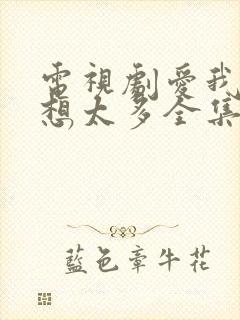 電視劇愛我
想太多全集
藍色牽牛花